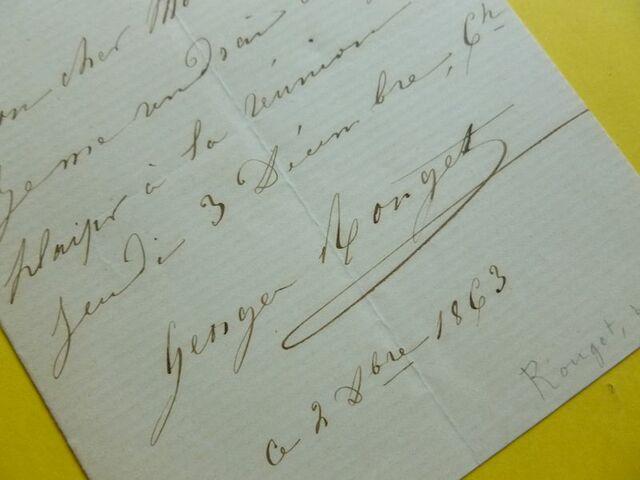 mon cher
Je me rendrai
plaisir à la réunion
Jeudi 3 Décembre, 6h
Georges Rouget
ce 2 Xbre 1863
Rouget,